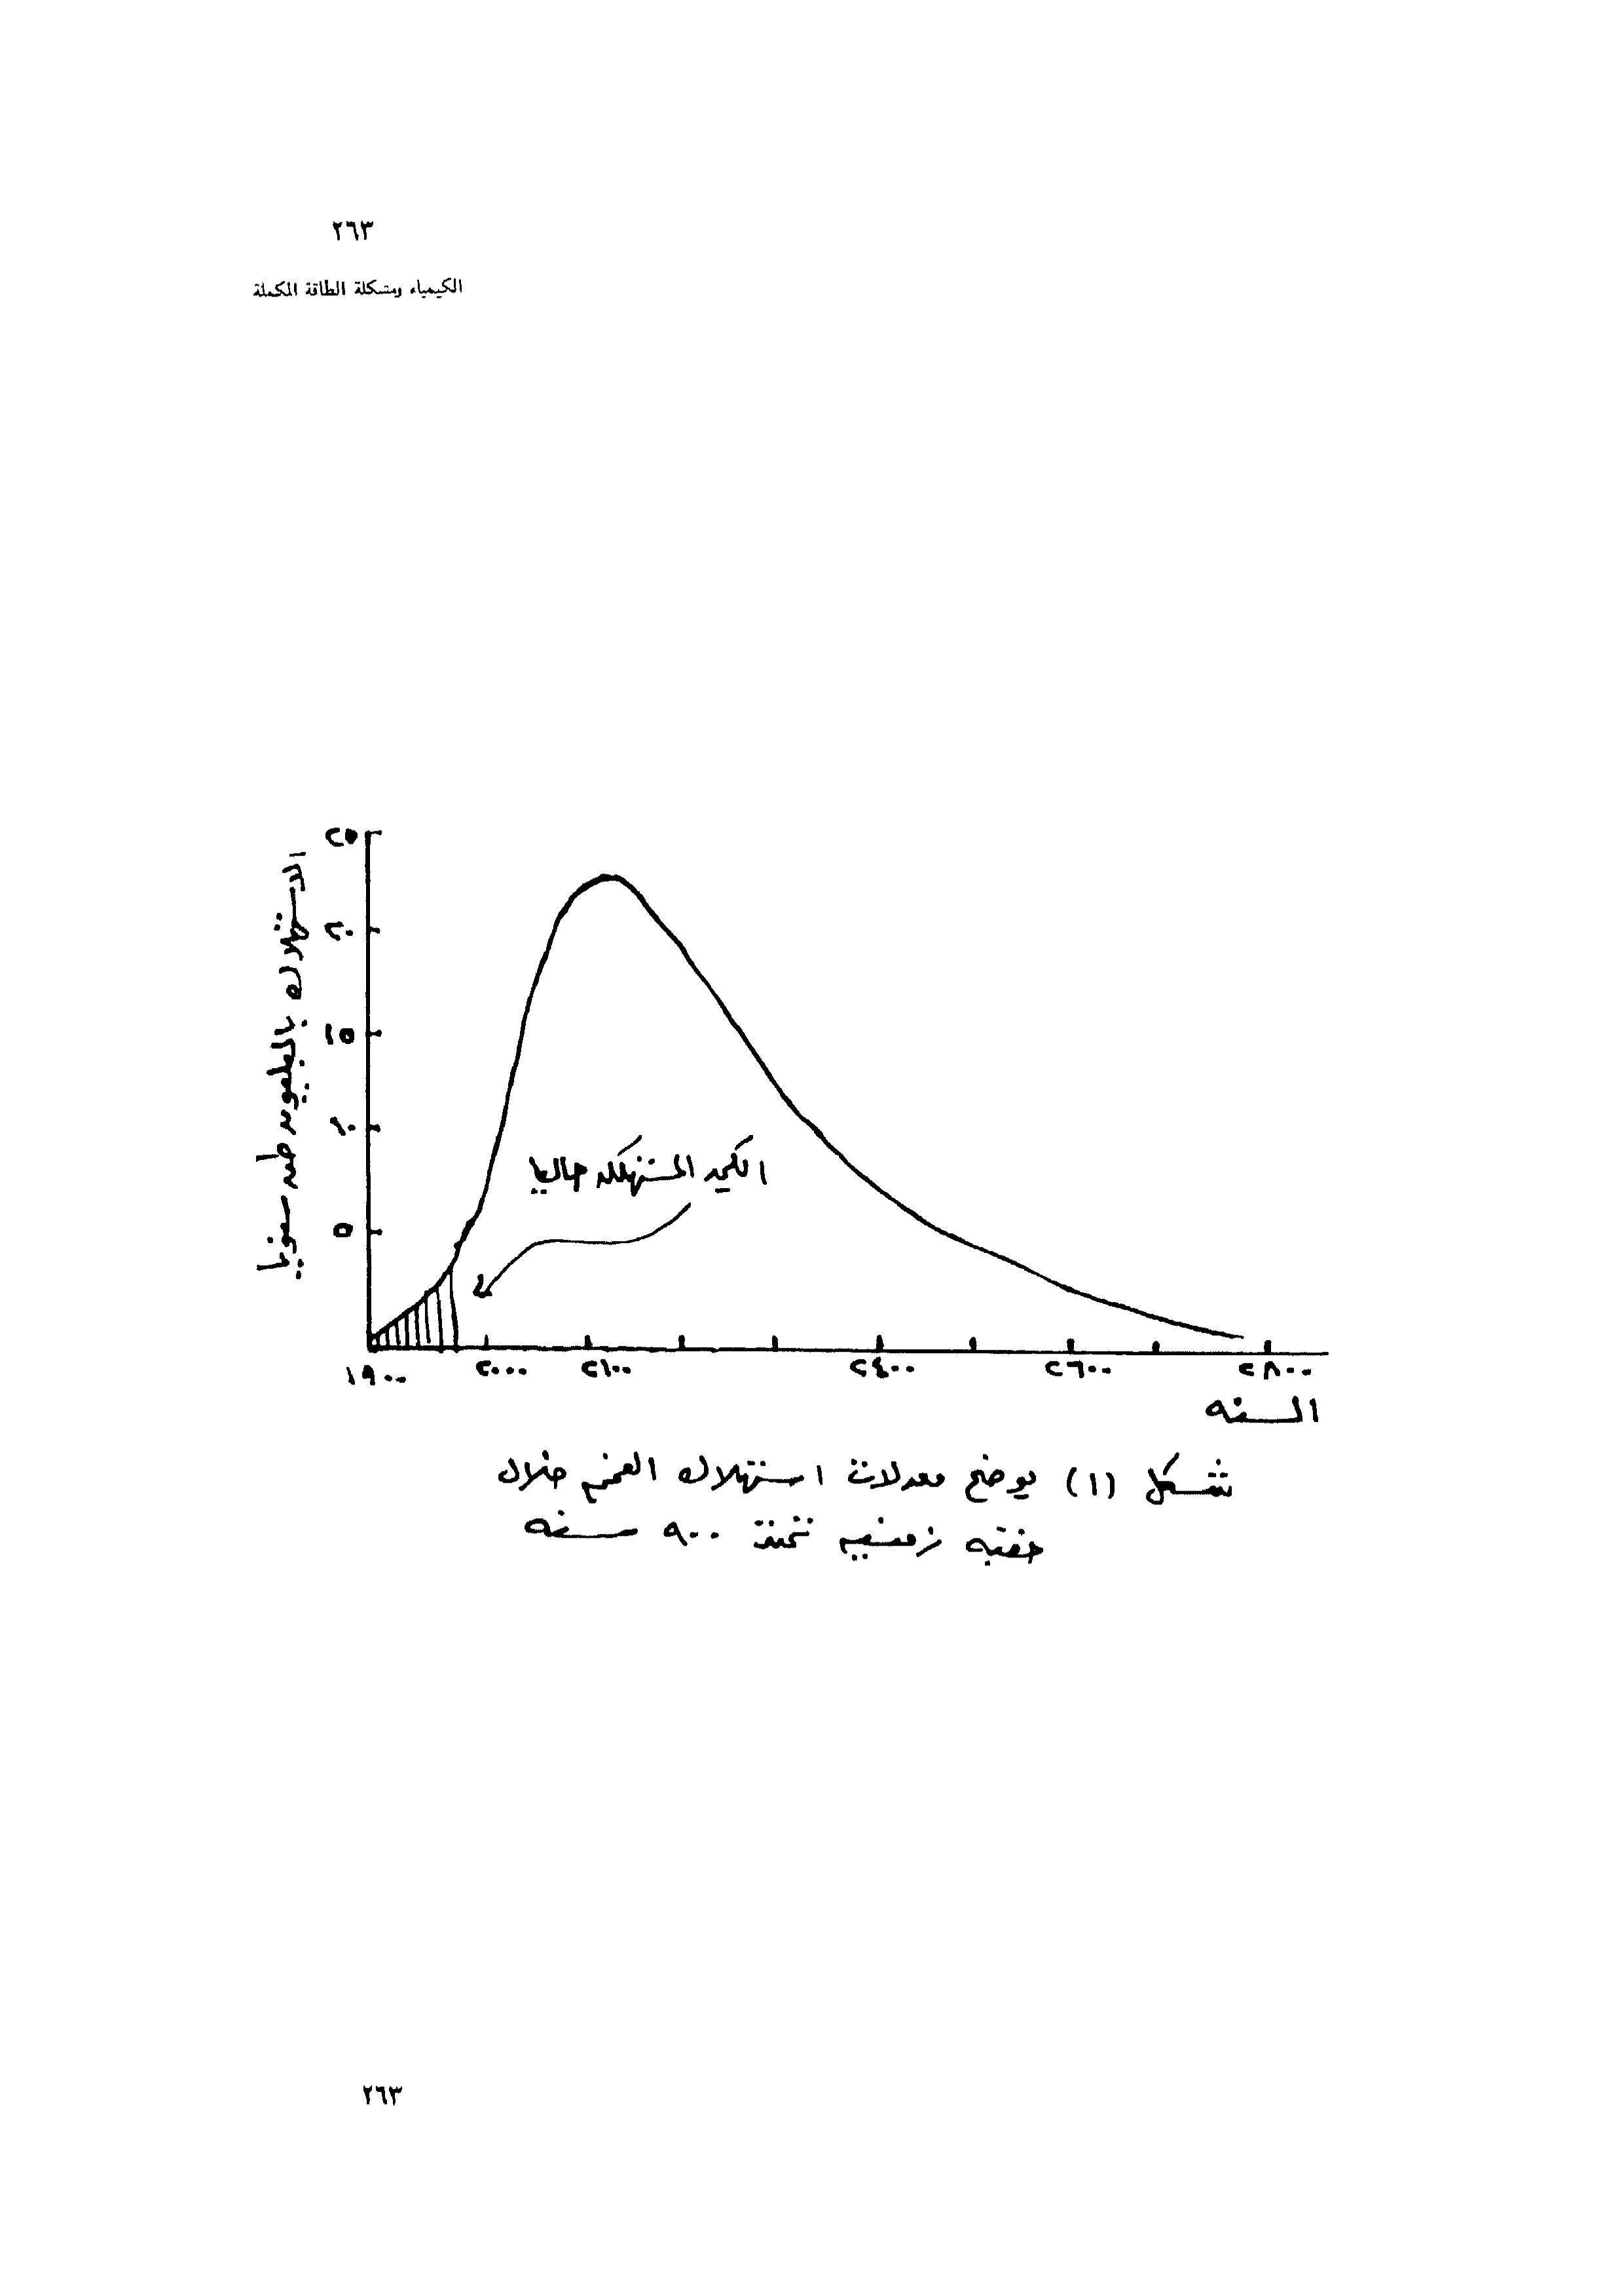 ٢٦٣
الكيمياء ومشكلة الطاقة المكملة
الاستهلاك بالبليون طن سنويا
٢٥
٢٠
١٥
١٠
٥
الكميه المستهلكه حاليا
١٩٠٠ ٢٠٠٠ ٢١٠٠ ٢٤٠٠ ٢٦٠٠ ٢٨٠٠
السنه
شكل (١) يوضح معدلات استهلاك الفحم خلال
حقبه زمنيه تمتد ٩٠٠ سنه
٢٦٣